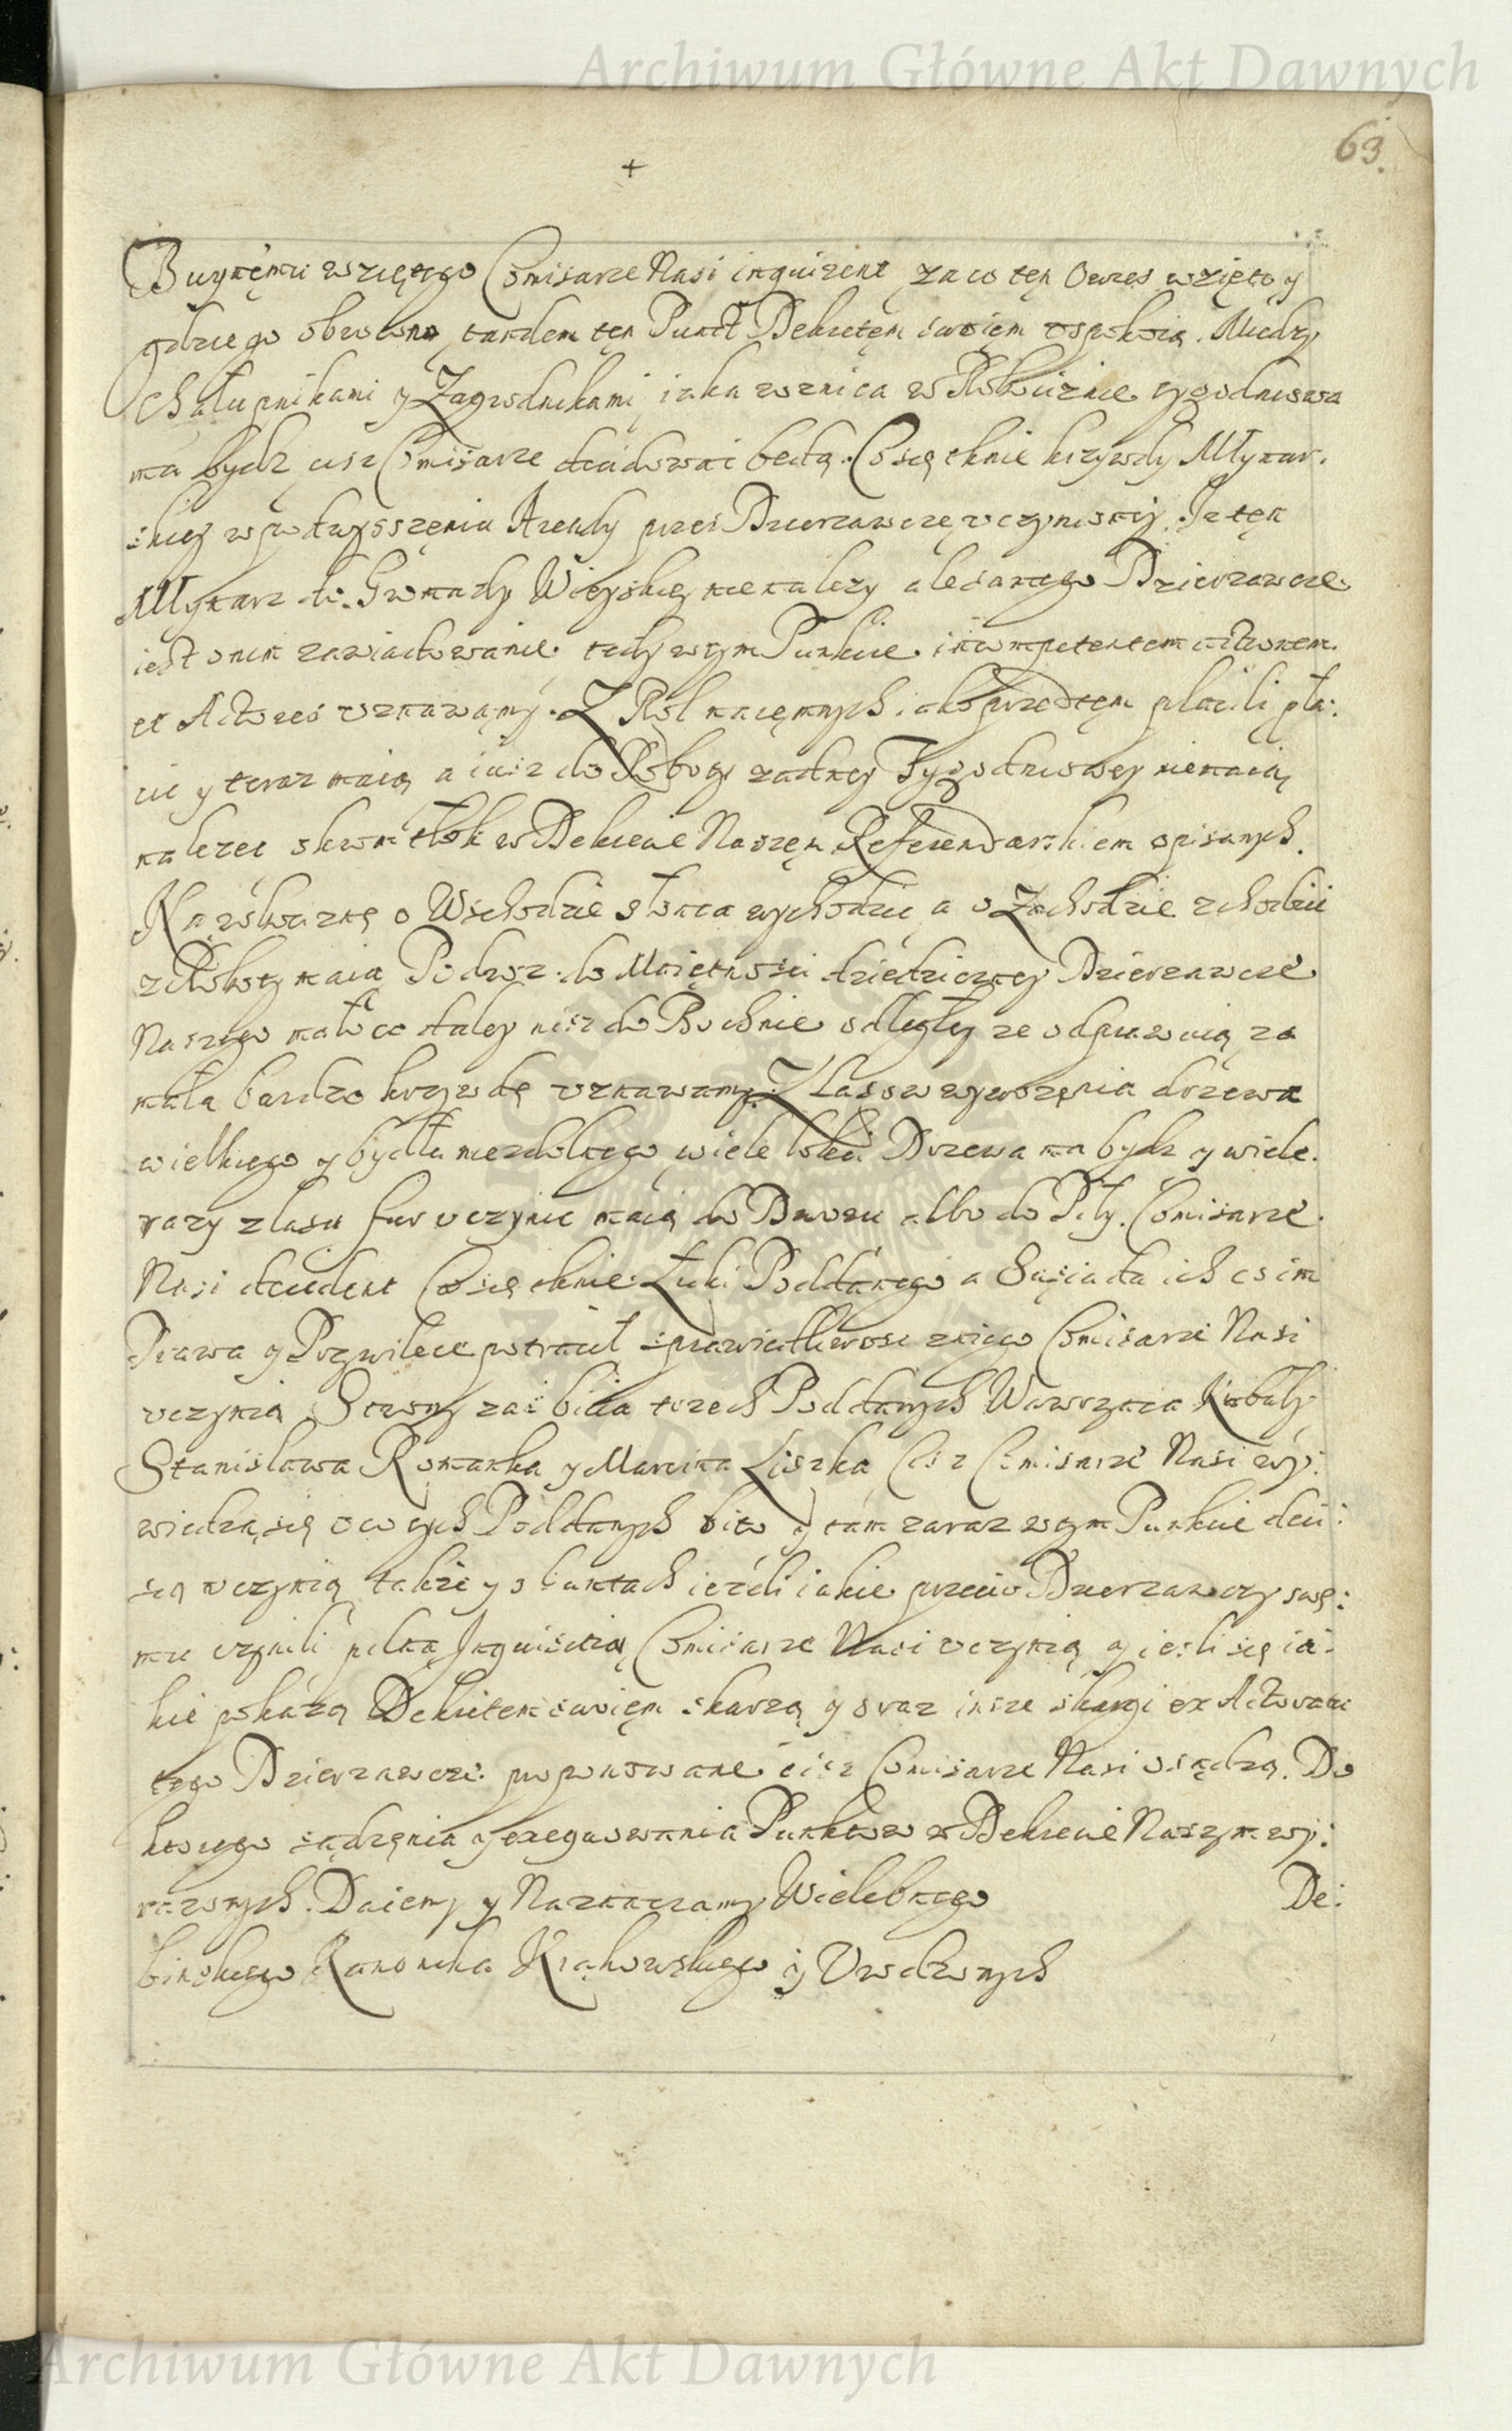 Archiwum Główne Akt Dawnych
63.
+
wziętego Comisarze Nasi inquirent za co tęn Owies wzięto y
gdzie go obrocono tandem tęn Punct Dekretęm swoięm uspokoią. Między
Chałupnikami y Zagrodnikami iaka roznica w Robociznie tygodniowa
ma bydz cisz Comisarze decidowac będą. Co się tknie krzywdy Młynar:
skiey w podwysszęniu Arendy przes Dzierzawcę uczynioney. Iz tęn
Młynarz do Gromady Wieyskiey nie nalezy ale samego Dzierzawce
iest o nim zawiadowanie tedy w tym Punkcie incompetentem actionem
et Actores uznawamy. Z Rol naięmnych iako przedtęm płacili pła:
cic y teraz maią a iusz do Roboty zadney Tygodniowey nie maią
nalezec okrom tłok w Dekrecie Naszęm Referendarskiem opisanych.
Na robociznę o Wschodzie słonca wychodzic a o Zachodzie zchodzic
z Roboty maią Podwoz do Maiętnosci dziedziczney Dzierzawce
Naszego mało co daley nisz do Bochnie odległey ze odprawuią za
małą bardzo krzywdę uznawamy. Z Lasow wywozęnia drzewa
wielkiego y bydłu niezdolnego wiele łokci Drzewa ma bydz y wiele
razy z lasu fur uczynic maią do Dworu albo do Piły. Comisarze
Nasi decident Co się tknie Łuki Poddanego a Sąsiada ich co im
Prawa y Przywileie potracił sprawiedliwosc z niego Comisarze Nasi
uczynią Strony zas bicia trzech Poddanych Wawrzynca Kobały
Stanisława Romanka y Marcina Liszka Cisz Comisarze Nasi wy:
wiedzą się o co tych Poddanych bito y tam zaraz w tym Punkcie deci:
sią uczynią także y o buntach iezeli iakie przeciw Dzierzawcy swe:
mu czynili pilną Inquisitią Comisarze Nasi uczynią y iesli się ia:
kie pokażą Dekretem swoięm skarzą y oraz insze skargi ex Actoratu
tego Dzierzawce proponowane cisz Comisarze Nasi osądzą. Do
ktorego sądzęnia y exequowania Punktow w Dekrecie Naszym wy:
razonych. Daiemy y Naznaczamy Wielebnego De:
binskiego Kanonika Krakowskiego y Urodzonych
Archiwum Główne Akt Dawnych